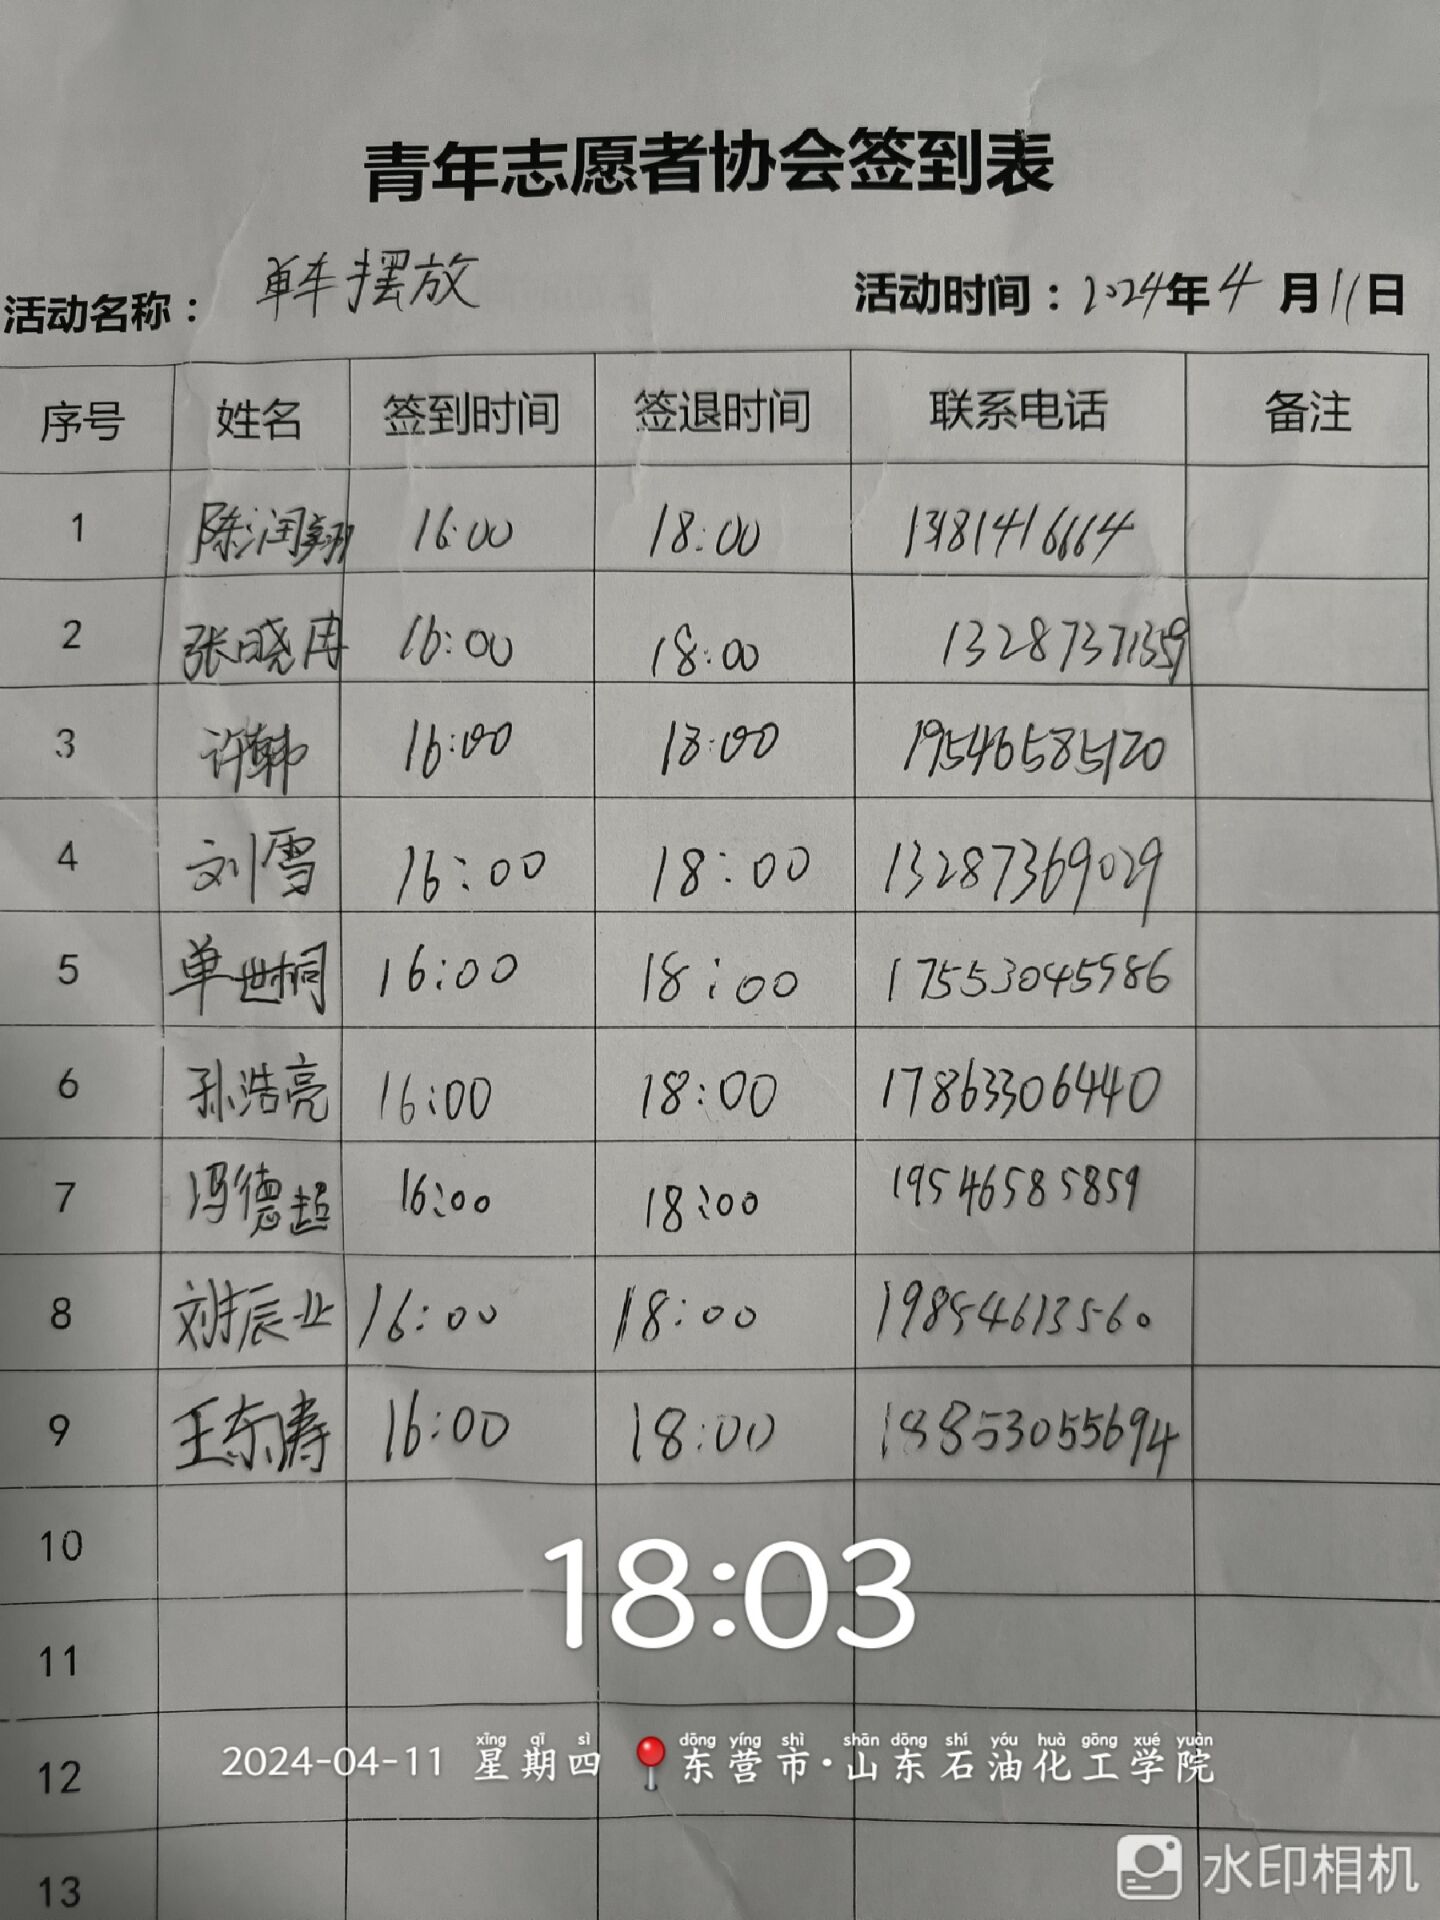 青年志愿者协会签到表
活动名称： 单车摆放 活动时间：2024年4月11日
序号 姓名 签到时间 签退时间 联系电话 备注
1 陈润翔 16:00 18:00
2 张晓冉 16:00 18:00 13287371359
3 许韩 16:00 18:00 19546585120
4 刘雪 16:00 18:00 13287369029
5 单世桐 16:00 18:00 17553045986
6 孙浩亮 16:00 18:00 17863306440
7 冯德超 16:00 18:00 19546585859
8 刘振业 16:00 18:00 19854613560
9 王东涛 16:00 18:00 18853055694
10
18:03
11
xīng qī sì dōng yíng shì shān dōng shí yóu huà gōng xué yuàn
2024-04-11 星期四 东营市·山东石油化工学院
12
水印相机
13